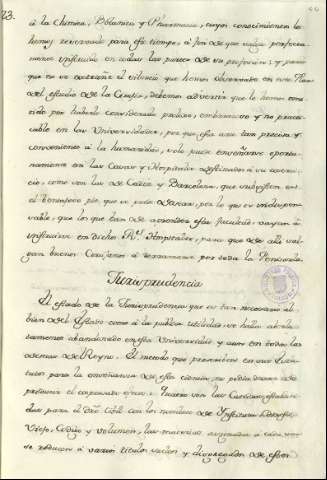 23.
à la Chimica, Botanica y Pharmacia, cuyos conocimientos le
hemos reservado para este tiempo, à fin de que salga perfecta-
mente instruido en todas las partes de su profesion; y para
que no se estrañe el silencio que hemos observado en este Plan
del estudio de la Cirujia, debemos advertir que lo hemos omi-
tido por haberlo considerado
cable en las Universidades, por que esta arte tan precisa y
conveniente à la humanidad, solo puede enseñarse oportu-
namente en las Casas y Hospitales destinados à su exerci-
cio, como son las de Cadiz y Barcelona, que subsisten en
el pie, que se pude desear, por lo que es indispen-
sable, que los que han de aprender esta facultad, vayan à
instruirse en dichos R.s Hospitales, para que de alli sal-
gan buenos Cirujanos à derramarse por toda la Peninsula
Jurisprudencia
El estudio de la Jurisprudencia que es tan necesario al
bien del Estado como à la publica utilidad, se halla
abandonado en esta Universidad y aun en todas las
demas del Reyno. El metodo que prescriben en sus Esta-
tutos para la enseñanza de esta ciencia, no podia dexar de
producir el expresado efecto. Quatro son las Catedras estableci-
das para el Dro Civil con los nombres de Instituta, Digesto
Viejo, Codigo y volumen, las materias asignadas à cada una
se reducen à varios titulos sueltos y disgregados de estos